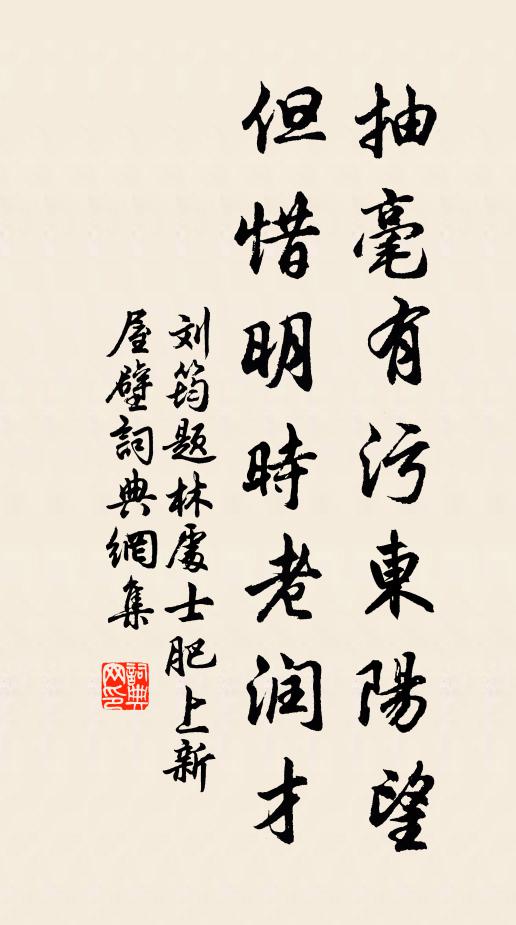 抽毫有污東陽望
但惜明時老润才
刘筠题林處士肥上新
屋壁詞典網集
詞典
网印